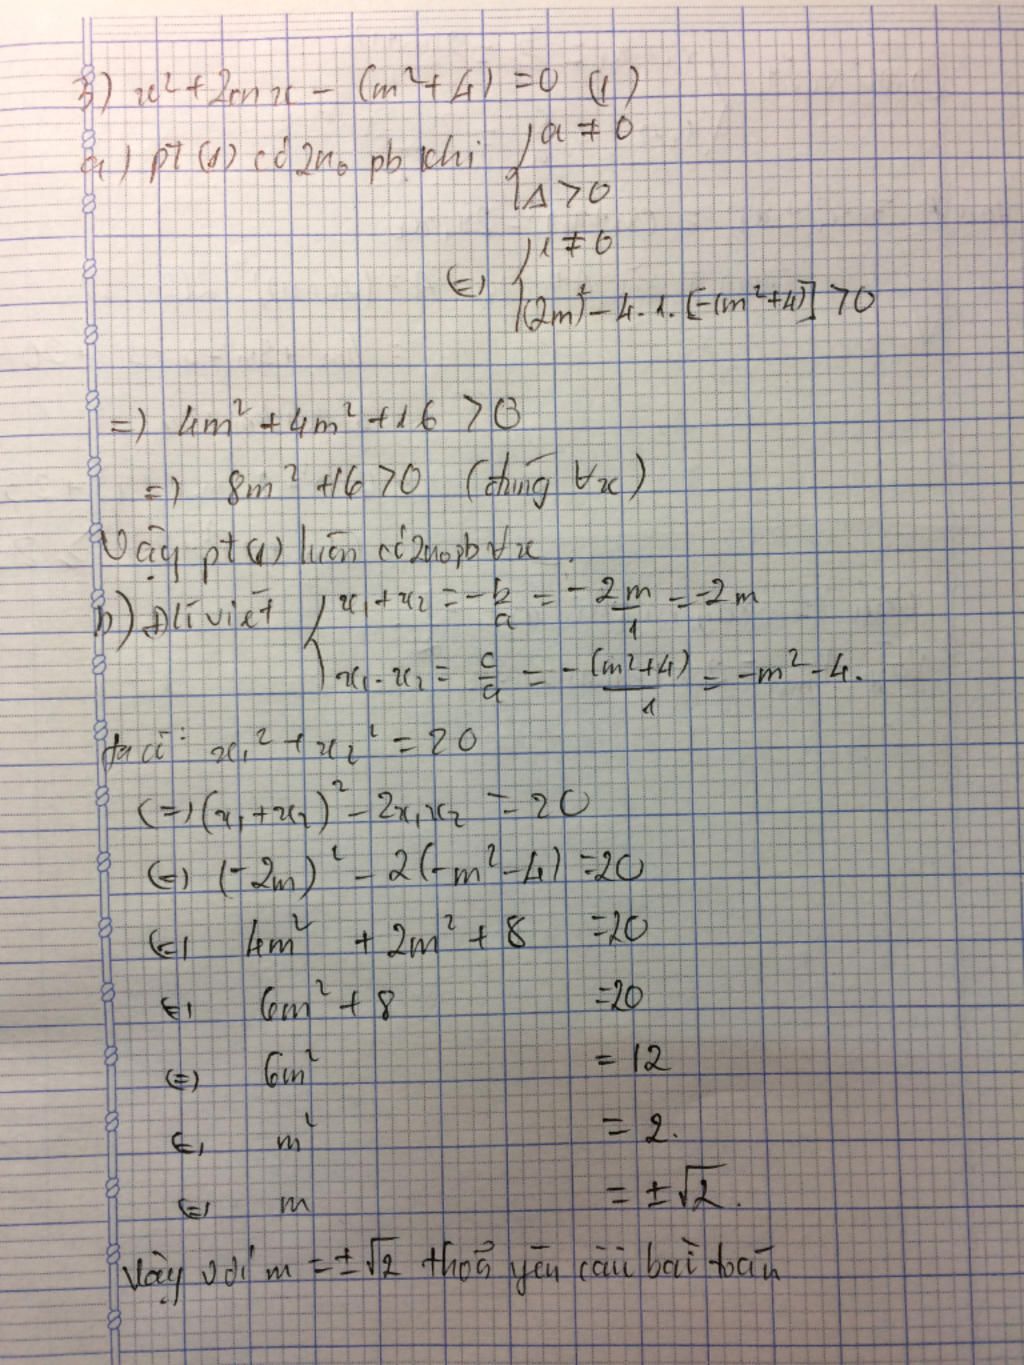 3) x² + 2mx - (m² + 4) = 0 (1)
a) pt (1) có 2no pb khi { a ≠ 0
Δ > 0
(=) { 1 ≠ 0
(2m)² - 4.1.[-(m² + 4)] > 0
=) 4m² + 4m² + 16 > 0
=) 8m² + 16 > 0 (đúng ∀x)
Vậy pt (1) luôn có 2no pb ∀x.
b) Đlí viét { x₁ + x₂ = -b/a = -2m/1 = -2m
x₁ . x₂ = c/a = -(m² + 4)/1 = -m² - 4.
ta có: x₁² + x₂² = 20
(=) (x₁ + x₂)² - 2x₁x₂ = 20
(=) (-2m)² - 2(-m² - 4) = 20
(=) 4m² + 2m² + 8 = 20
(=) 6m² + 8 = 20
(=) 6m² = 12
(=) m² = 2.
(=) m = ±√2.
Vậy với m = ±√2 thoả yêu cầu bài toán